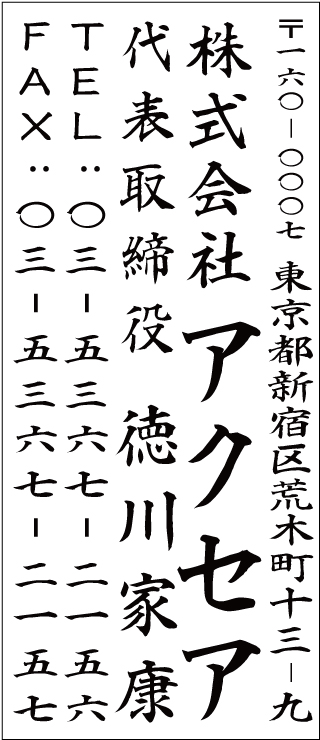 〒一六〇－〇〇〇七 東京都新宿区荒木町十三－九
株式会社アクセア
代表取締役 徳川家康
TEL：〇三－五三六七－二一五六
FAX：〇三－五三六七－二一五七